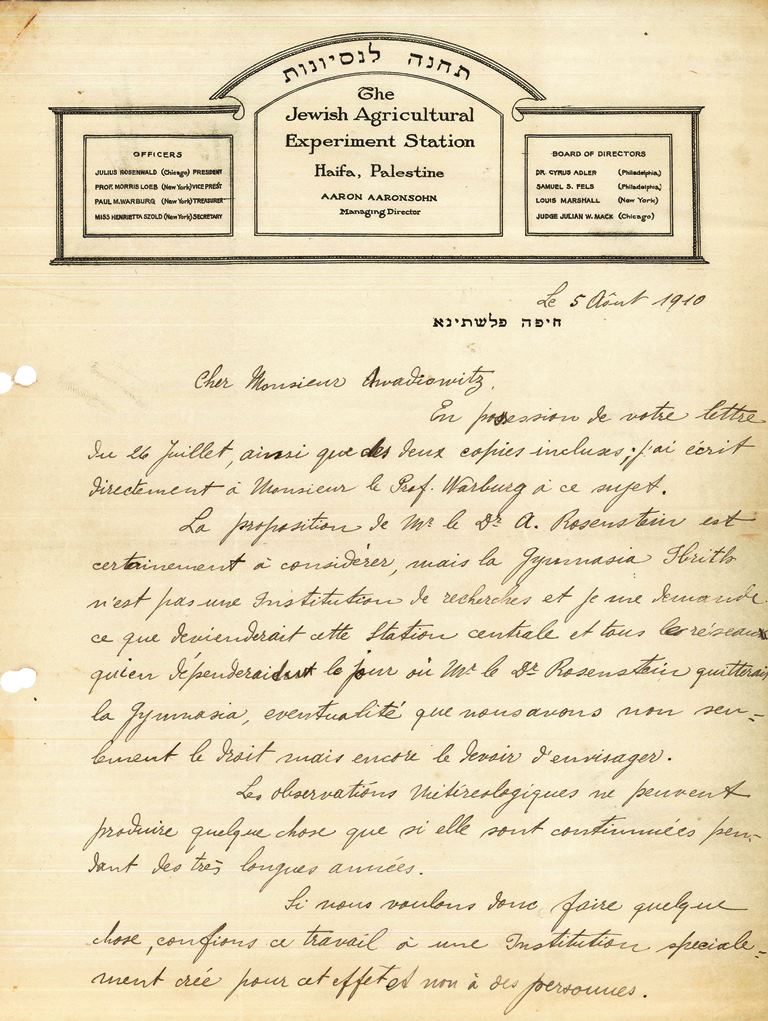 תחנה לנסיונות
The
Jewish Agricultural
Experiment Station
Haifa, Palestine
AARON AARONSOHN
Managing Director
OFFICERS
JULIUS ROSENWALD (Chicago) PRESIDENT
PROF. MORRIS LOEB (New York) VICE PREST
PAUL M. WARBURG (New York) TREASURER
MISS HENRIETTA SZOLD (New York) SECRETARY
BOARD OF DIRECTORS
DR. CYRUS ADLER (Philadelphia)
SAMUEL S. FELS (Philadelphia)
LOUIS MARSHALL (New York)
JUDGE JULIAN W. MACK (Chicago)
Le 5 Aôut 1910
חיפה פלשתינא
Cher Monsieur Awadiowitz,
En possession de votre lettre
du 26 Juillet, ainsi que des deux copies incluses; j'ai écrit
directement à Monsieur le Prof. Warburg à ce sujet.
La proposition de Mr le Dr A. Rosenstein est
certainement à considérer, mais la Gymnasia Ibrith
n'est pas une Institution de recherches et je me demande
ce que deviendrait cette Station centrale et tous les réseaux
qui en dépenderaient le jour où Mr le Dr Rosenstein quitterait
la Gymnasia, eventualité que nous avons non seu-
lement le droit mais encore le devoir d'envisager.
Les observations Météreologiques ne peuvent
produire quelque chose que si elle sont continuées pen-
dant des très longues années.
Si nous voulons donc faire quelque
chose, confions ce travail à une Institution speciale-
ment créé pour cet effet et non à des personnes.